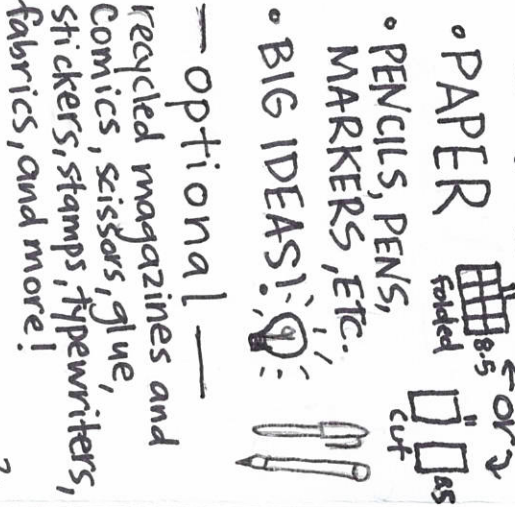 • PAPER
8.5"
folded
← or →
cut
8.5
• PENCILS, PENS,
MARKERS, ETC.
• BIG IDEAS!
— optional —
recycled magazines and
comics, scissors, glue,
stickers, stamps, typewriters,
fabrics, and more!